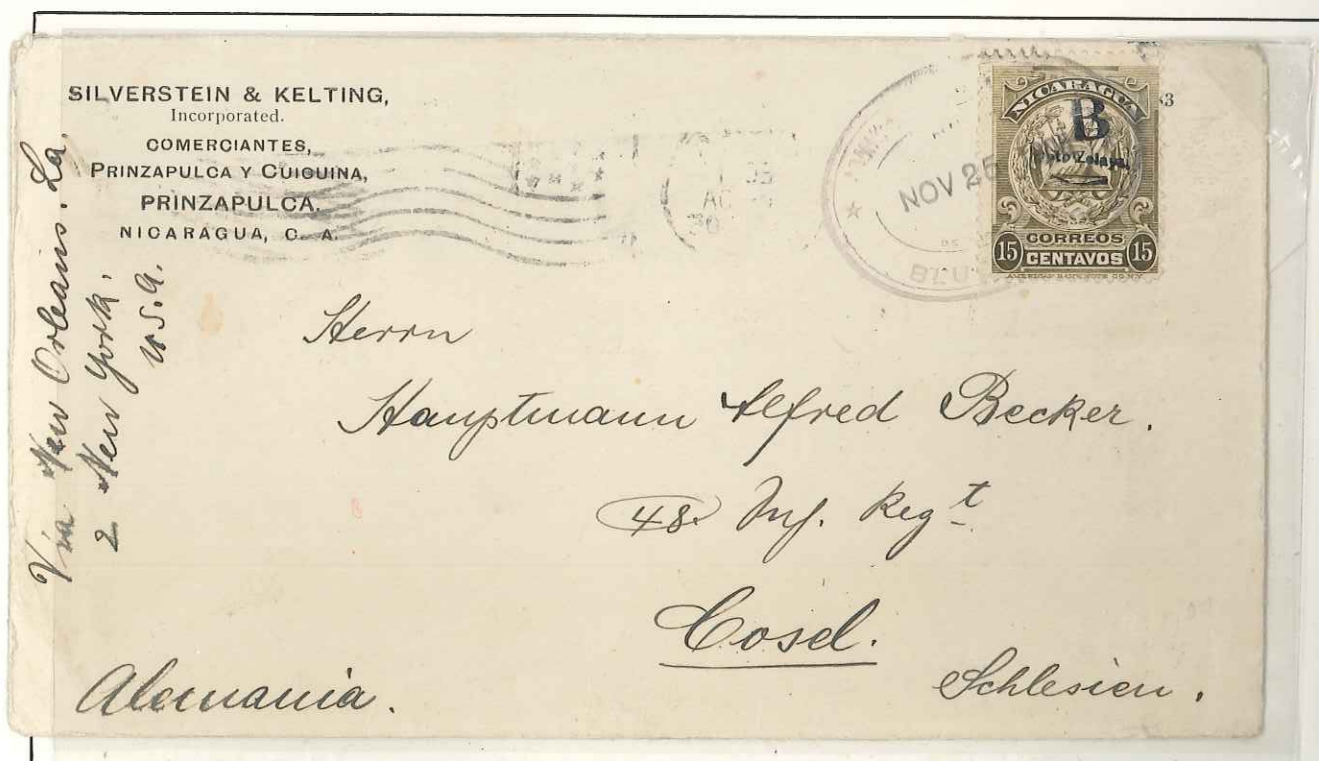 SILVERSTEIN & KELTING,
Incorporated.
COMERCIANTES,
PRINZAPULCA Y CUICUINA,
PRINZAPULCA.
NICARAGUA, C. A.
Via New Orleans. La
2 New York.
U.S.A.
NOV 25
BLU
NICARAGUA
B
Dpto Zelaya
CORREOS
15 CENTAVOS 15
AMERICAN BANK NOTE CO. N.Y.
Herrn
Hauptmann Alfred Becker.
48. Inf. Regt
Cosel.
Schlesien.
Alemania.